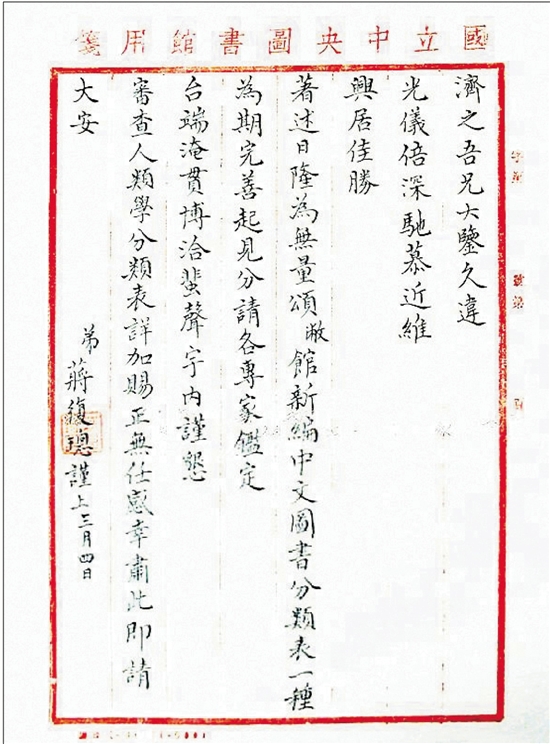 國立中央圖書館用箋
濟之吾兄大鑒久違
光儀倍深馳慕近維
興居佳勝
著述日隆為無量頌敝館新編中文圖書分類表一種
為期完善起見分請各專家鑑定
台端淹貫博洽蜚聲宇內謹懇
審查人類學分類表詳加賜正無任感幸肅此即請
大安
弟蔣復璁謹上三月四日